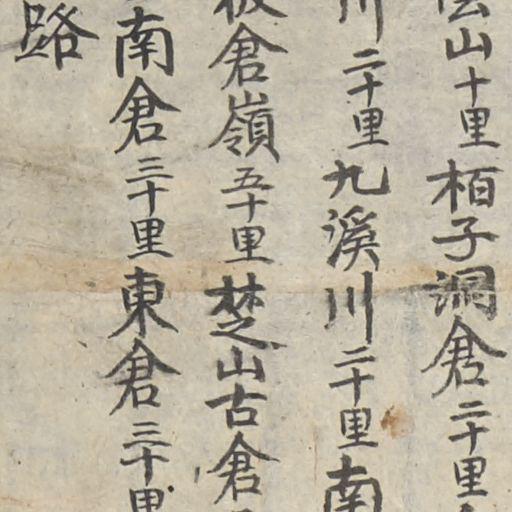 山十里栢子洞倉二十里
川二十里九溪川二十里南
倉嶺五十里楚山古倉
南倉三十里東倉三十里
路